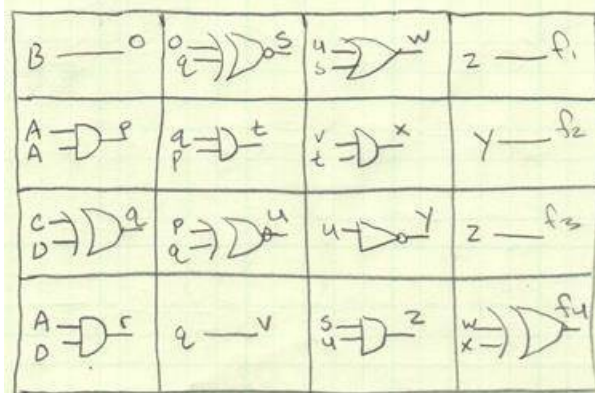 B o o q s u s w z f1
A A p q p t v t x y f2
C D q p q u u y z f3
A D r q v s u z w x f4